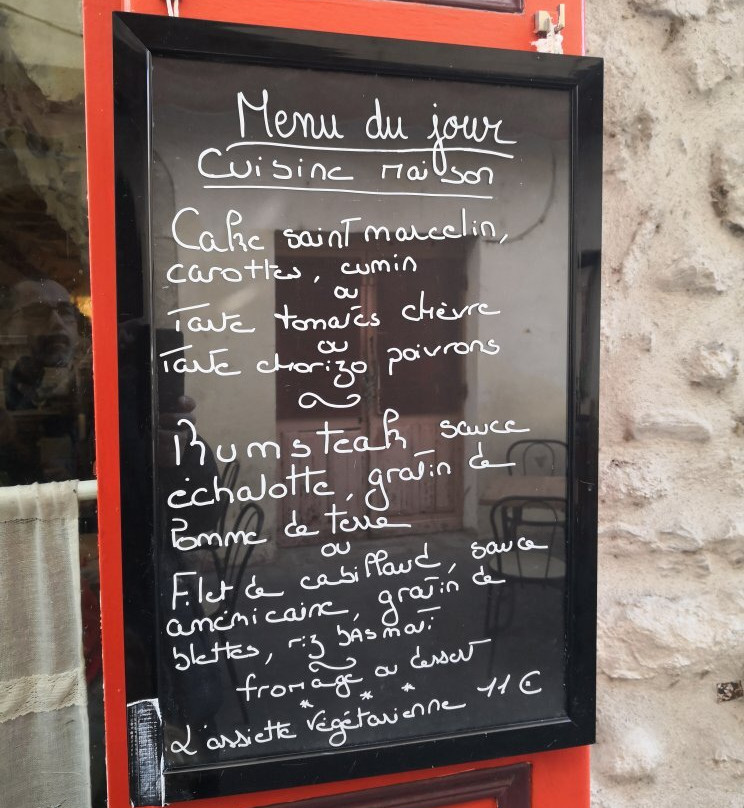 Menu du jour
Cuisine maison
Cake saint marcelin,
carottes, cumin
ou
Tarte tomates chèvre
ou
Tarte chorizo poivrons
Rumsteak sauce
échalotte, gratin de
Pomme de terre
ou
Filet de cabillaud, sauce
américaine, gratin de
blettes, riz basmati
fromage ou dessert
* * *
L'assiette végétarienne 11 €